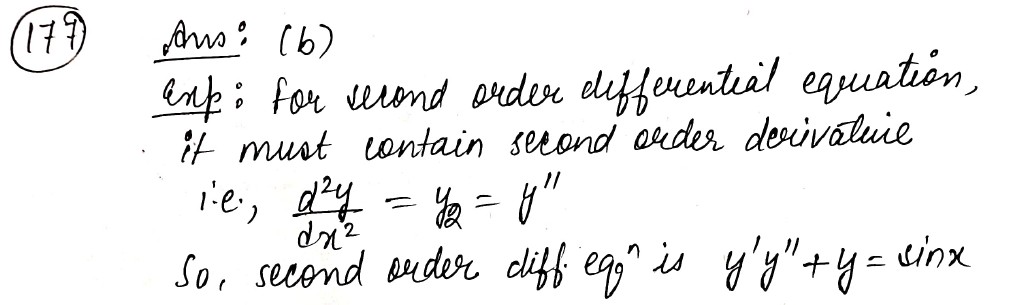 179 Ans: (b)
Exp: for second order differential equation,
it must contain second order derivative
i.e., d²y/dx² = y₂ = y"
So, second order diff. eqⁿ is y'y" + y = sinx